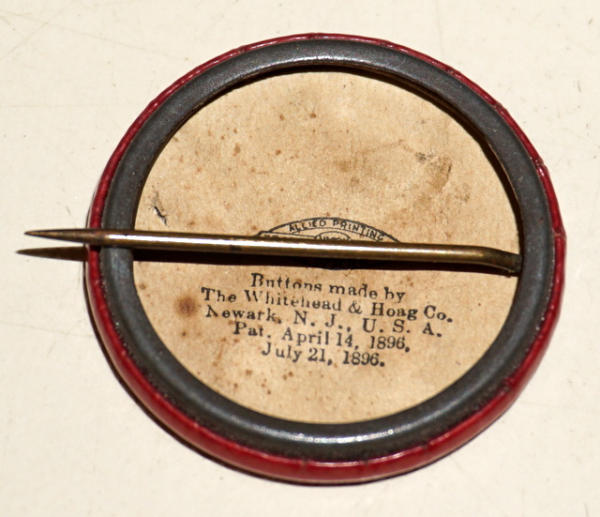 ALLIED PRINTING
Buttons made by
The Whitehead & Hoag Co.
Newark, N. J., U. S. A.
Pat. April 14, 1896,
July 21, 1896.